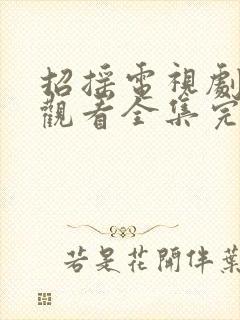 招摇電視劇
觀看全集完
若是花開伴葉